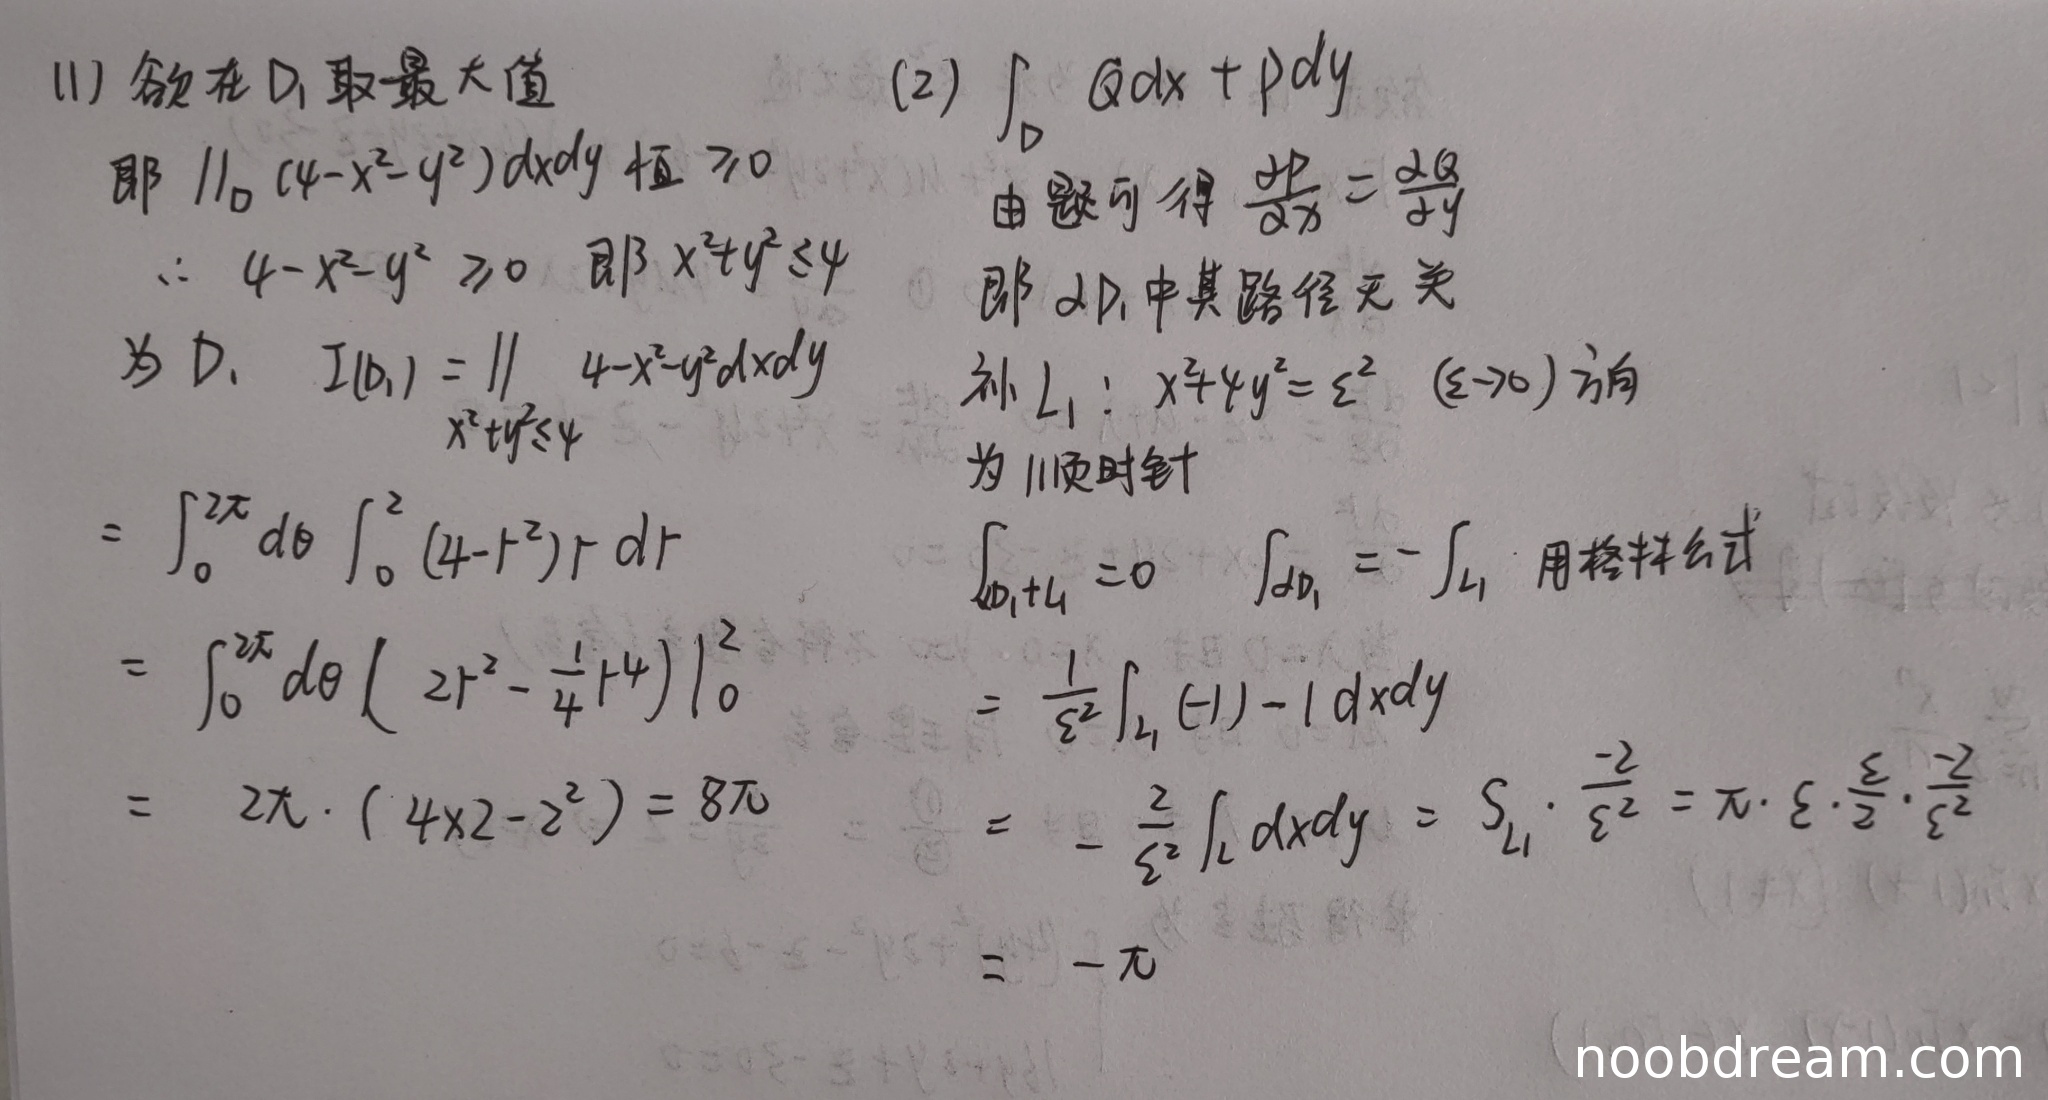 (1) 欲在 D₁ 取最大值
即 ∬_D (4-x²-y²)dxdy 恒 ≥0
∴ 4-x²-y² ≥0 即 x²+y²≤4
为 D₁ I(D₁) = ∬ 4-x²-y²dxdy
x²+y²≤4
= ∫₀^{2π} dθ ∫₀² (4-r²)r dr
= ∫₀^{2π} dθ ( 2r² - 1/4 r⁴)|₀²
= 2π · ( 4×2-2² ) = 8π
(2) ∫_D Qdx + Pdy
由题可得 ∂P/∂x = ∂Q/∂y
即 ∂D₁ 中其路径无关
补 L₁ : x²+4y² = ε² (ε→0) 方向
为顺时针
∫_{∂D₁+L₁} =0 ∫_{∂D₁} = -∫_{L₁} 用格林公式
= 1/ε² ∫_{L₁} (-1) - 1 dxdy
= - 2/ε² ∫_L dxdy = S_{L₁} · -2/ε² = π · ε · ε/2 · -2/ε²
= -π
noobdream.com